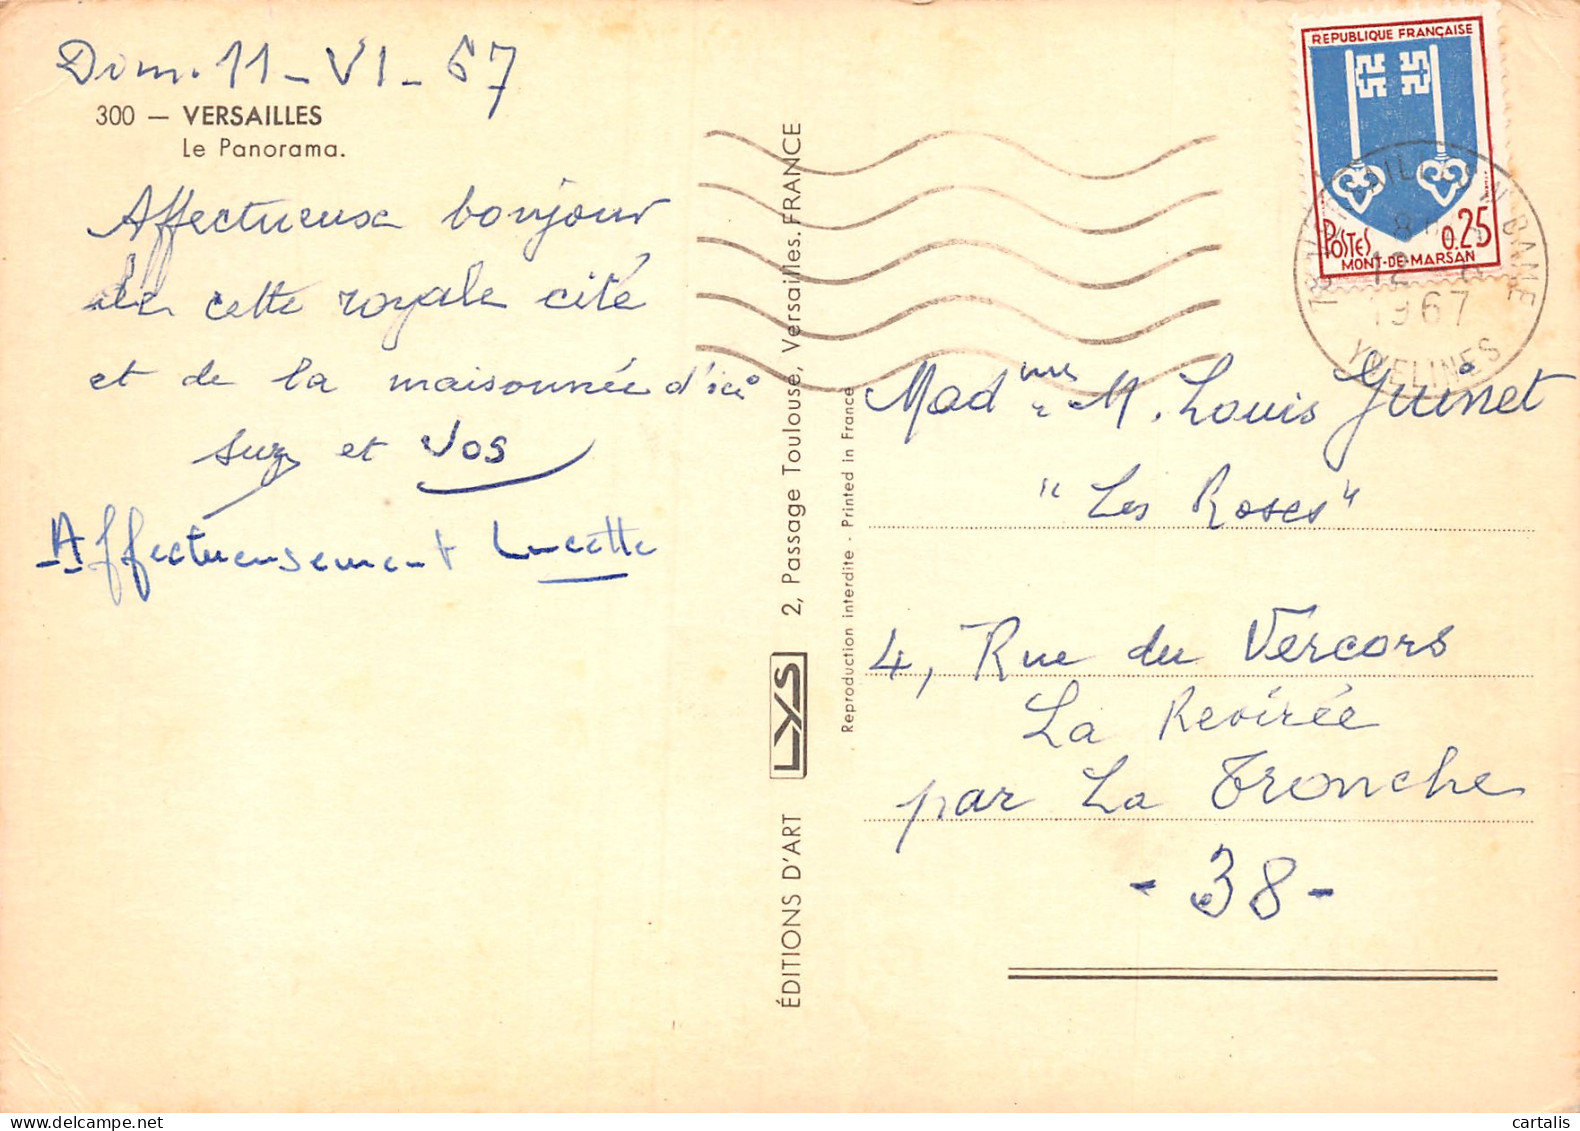 Dim. 11 - VI - 67
300 — VERSAILLES
Le Panorama.
Affectueuse bonjour
de cette royale cité
et de la maisonnée d'ici
Suz et Jos
Affectueusement Lucette
ÉDITIONS D'ART LYS 2, Passage Toulouse, Versailles. FRANCE
Reproduction interdite - Printed in France
REPUBLIQUE FRANÇAISE
POSTES 0.25
MONT-DE-MARSAN
12
1967
YVELINES
M. Louis
"Les Roses"
4, Rue du Vercors
La Revirée
par La Tronche
- 38 -
cartalis